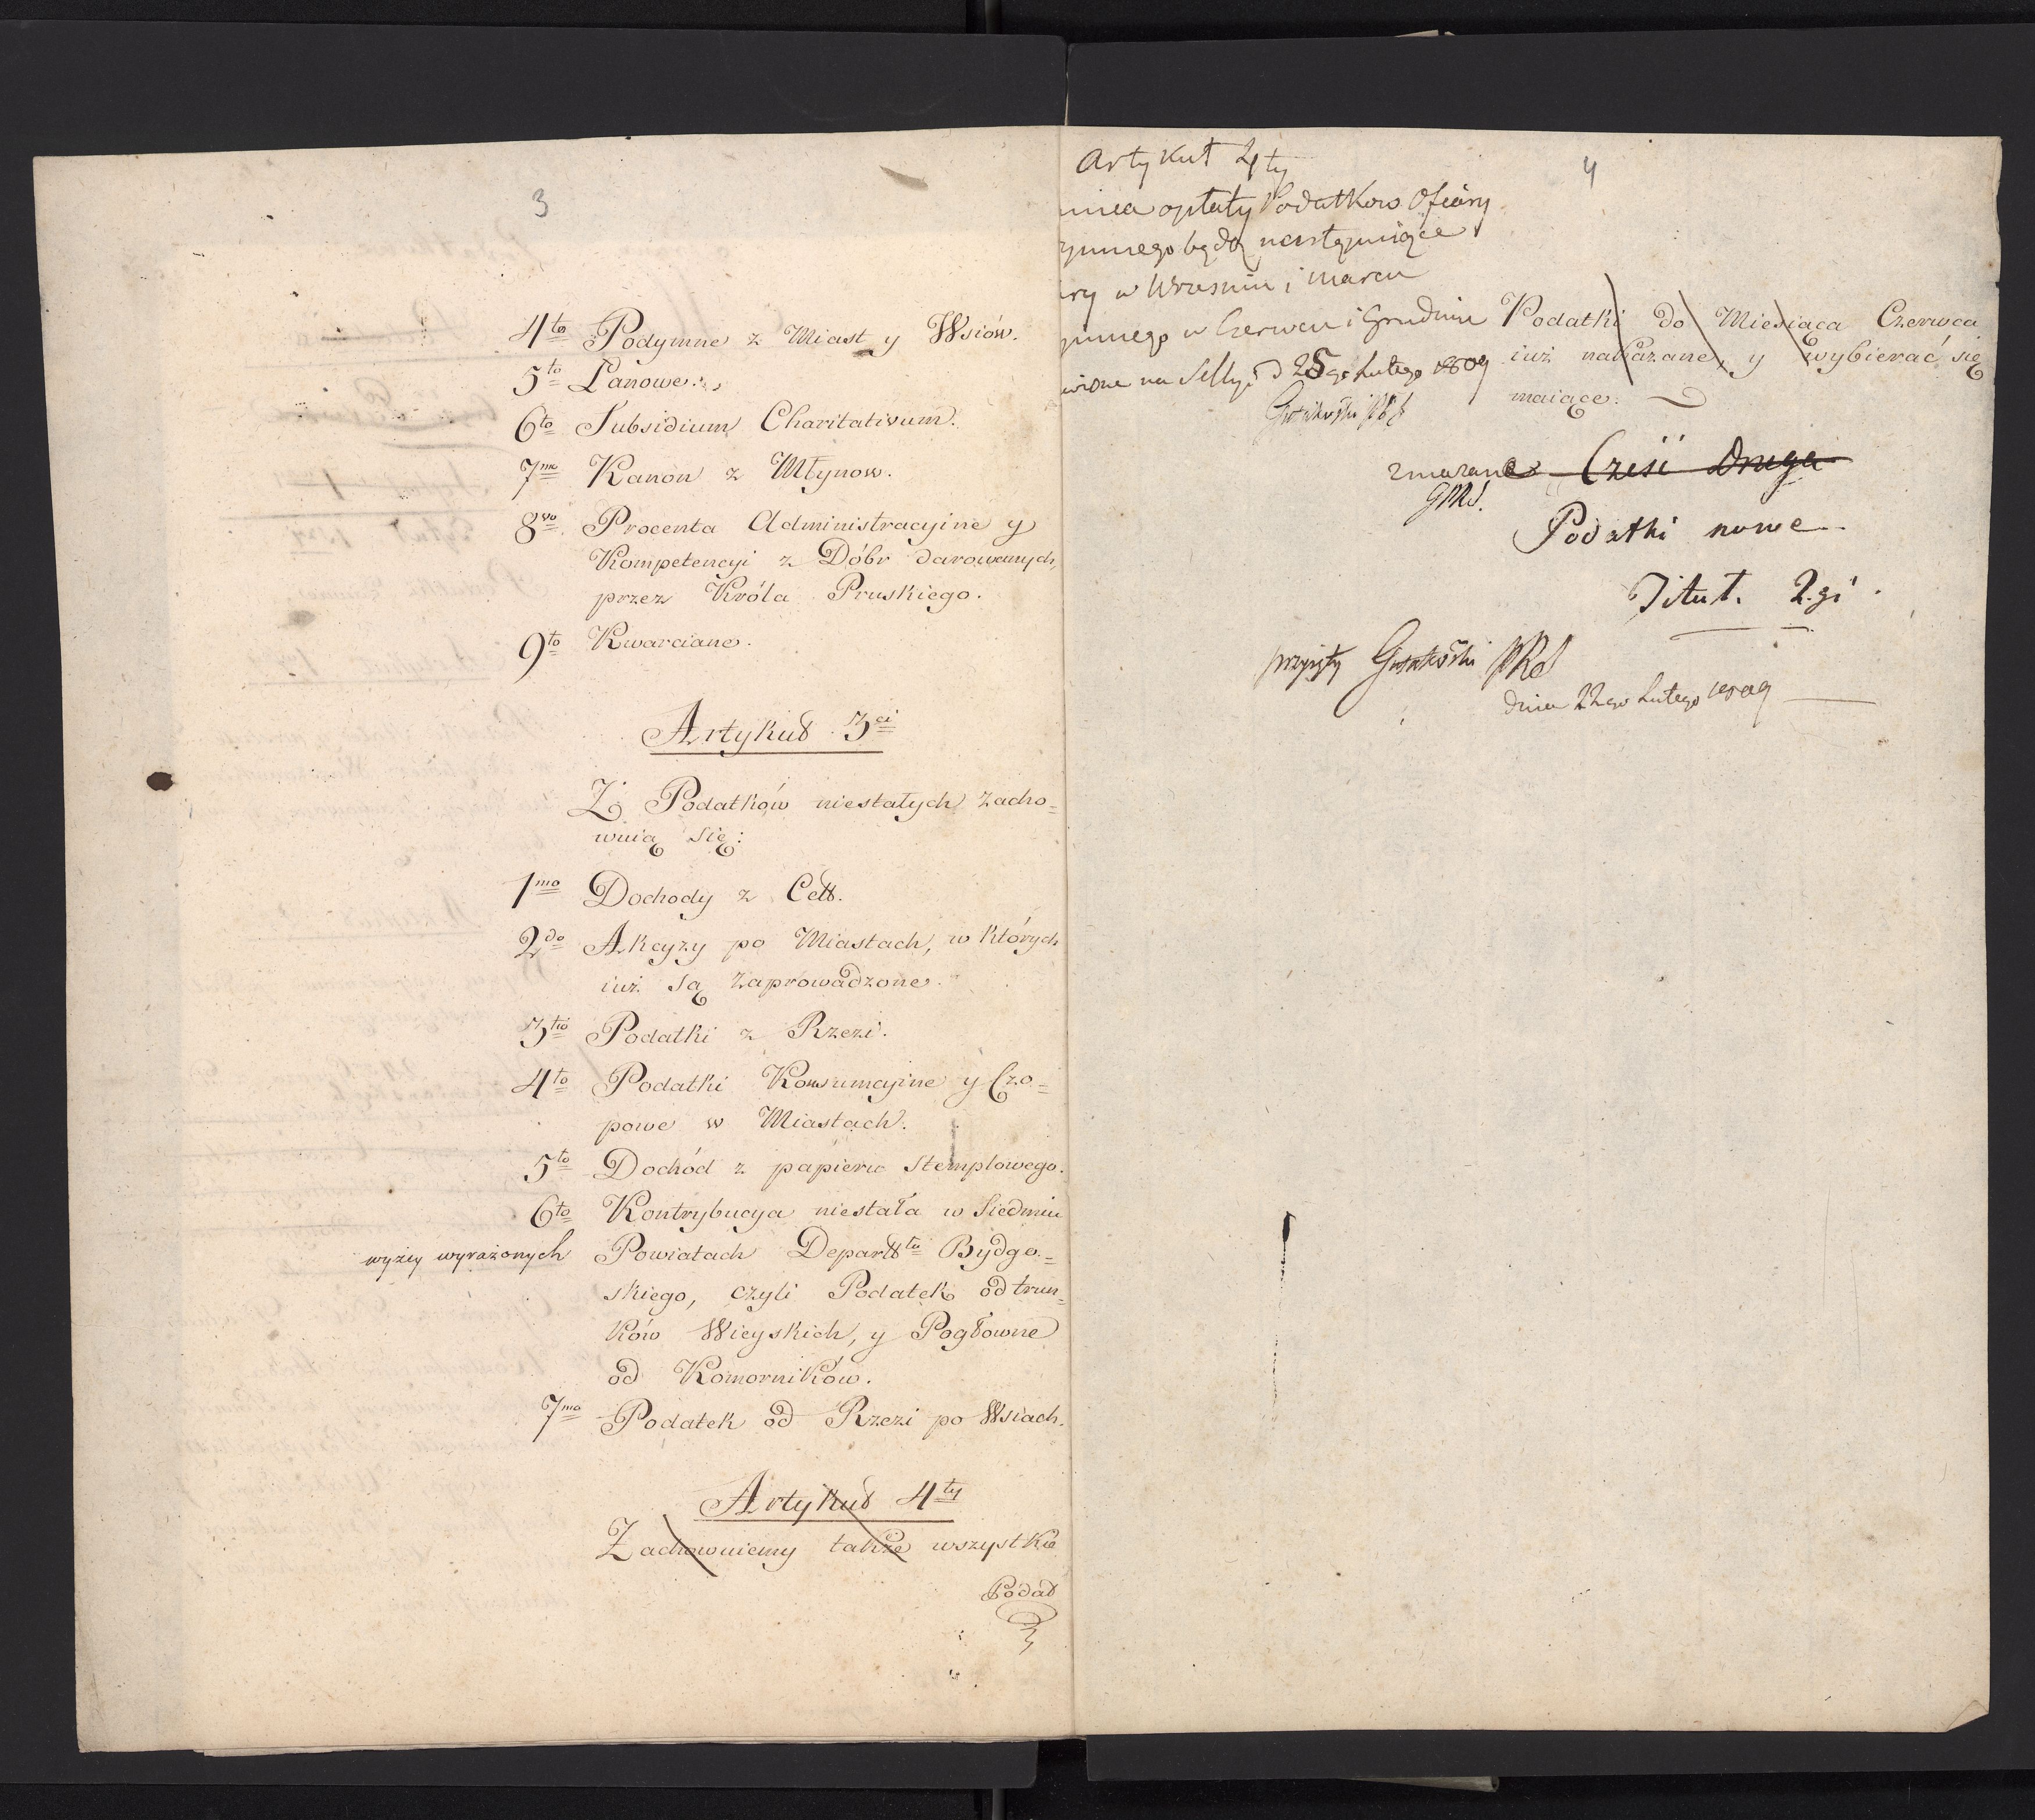 3
4to Podymne z Miast y Wsiów.
5to Łanowe.
6to Subsidium Charitativum.
7mo Kanon z Młynow.
8vo Procenta Administracyine y
Kompetencyi z Dóbr darowanych,
przez Króla Pruskiego.
9to Kwarciane.
Artykuł 3ci
Z Podatków niestałych zacho=
wuią się:
1mo Dochody z Cełł.
2do Akcyzy po Miastach, w których
iuż są zaprowadzone.
3tio Podatki z Rzezi.
4to Podatki Konsumcyine y Czo=
powe w Miastach.
5to Dochód z papieru Stemplowego.
6to Kontrybucya niestała w Siedmiu
wyżey wyrażonych Powiatach Departtu Bydgo=
skiego, czyli Podatek od trun=
ków Wieyskich, y Pogłowne
od Komorników.
7mo Podatek od Rzezi po Wsiach.
Artykuł 4ty
Zachowuiemy także wszystkie
Podat
4
Artykuł 4ty
opłaty Podatkow Ofiary
ymnego będą następuiące
ry w Wrześniu i marcu
ymnego w Czerwcu i Grudniu
na Sessyi d 25go Lutego 1809
Podatki do Miesiąca Czerwca
iuż nakazane, y wybierać się
maiące.
zmazane Cześć Druga
Podatki nowe
Tituł. 2.gi
przyięty PRS
dnia 22go Lutego 1809